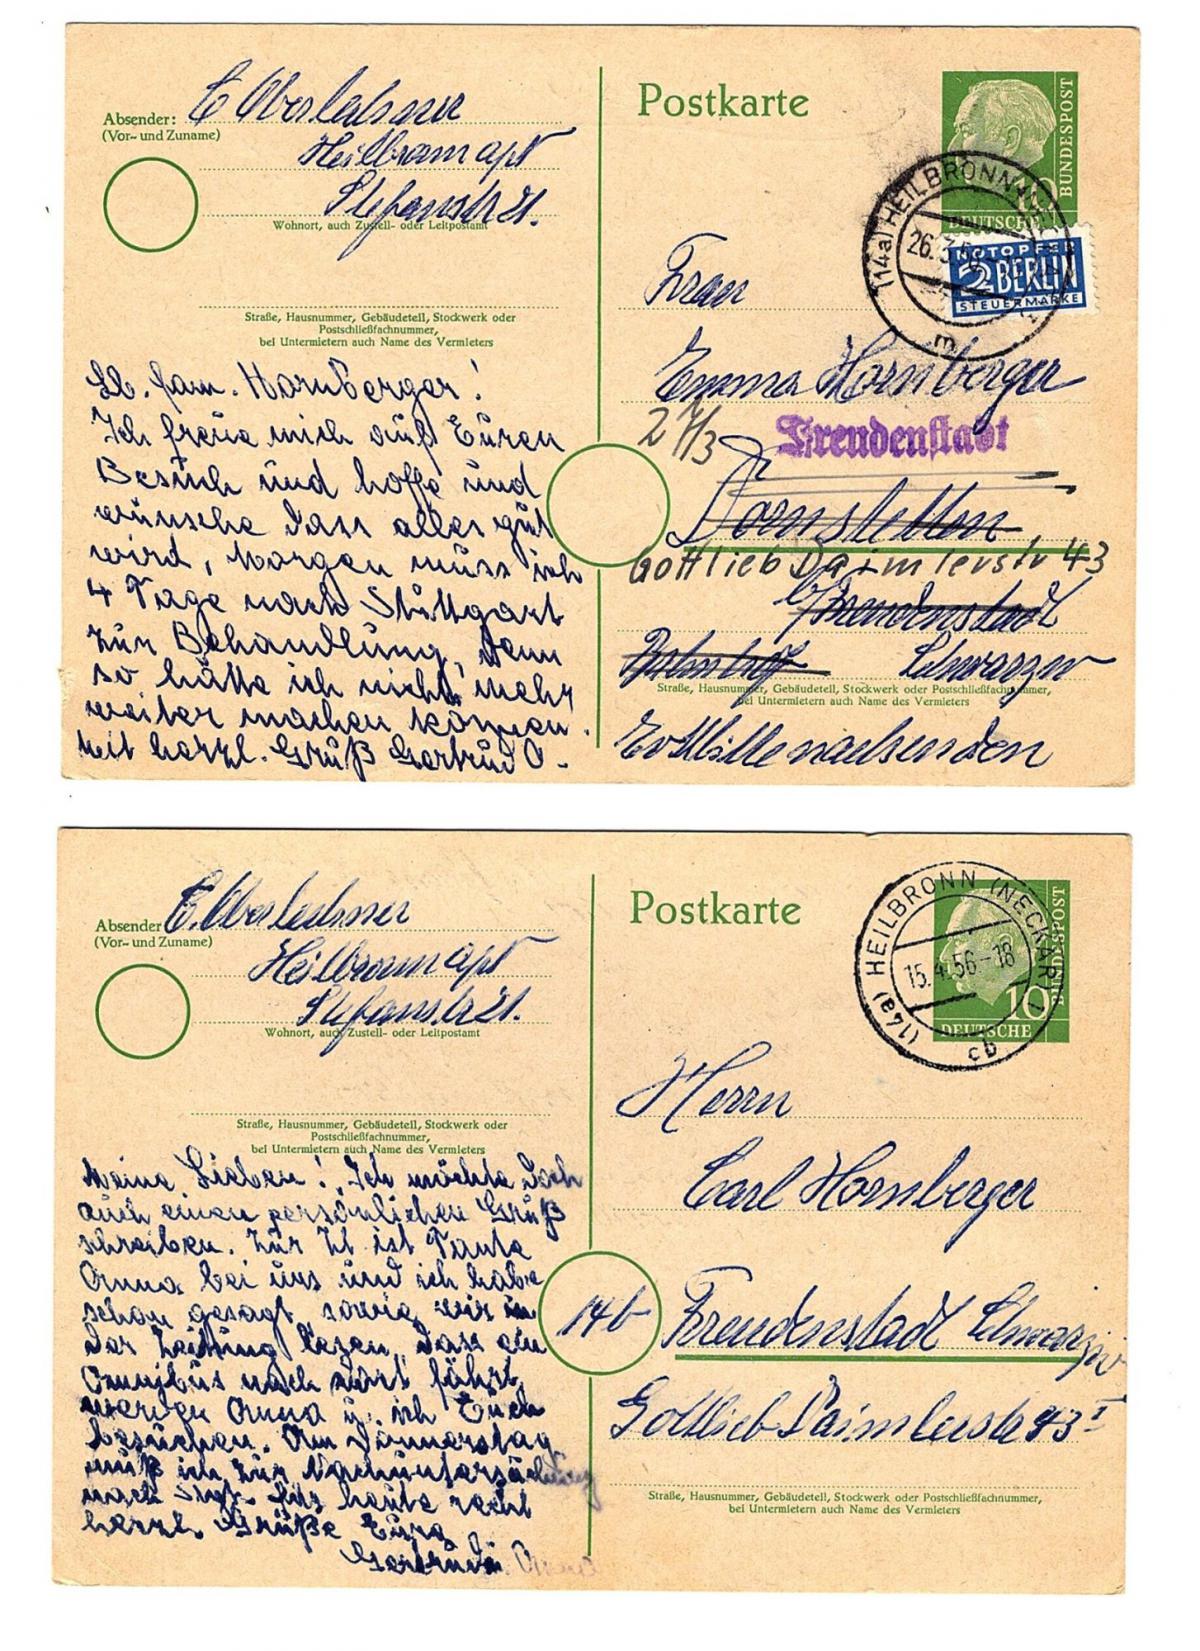 Absender:
(Vor- und Zuname)
E Oberlechner
Heilbronn
Wohnort, auch Zustell- oder Leitpostamt
Straße, Hausnummer, Gebäudeteil, Stockwerk oder
Postschließfachnummer,
bei Untermietern auch Name des Vermieters
Lb. fam. Hornberger!
Ich freue mich auf Euren
Besuch und hoffe und
wünsche dass alles gut
wird, Morgen muss ich
4 Tage nach Stuttgart
zur Behandlung, denn
so hätte ich nicht mehr
weiter machen können.
Mit herzl. Gruß Gertrud O.
Postkarte
10
DEUTSCHE
BUNDESPOST
(14a) HEILBRONN
26.3.56
m
NOTOPFER
2 BERLIN
STEUERMARKE
Frau
Emma Hornberger
27/3
Freudenstadt
Dornstetten
Gottlieb Daimlerstr 43
b/Freudenstadt
Bahnhof Schwarzw
Straße, Hausnummer, Gebäudeteil, Stockwerk oder Postschließfachnummer,
bei Untermietern auch Name des Vermieters
Bitte nachsenden
Absender
(Vor- und Zuname)
E. Oberlechner
Heilbronn
Wohnort, auch Zustell- oder Leitpostamt
Straße, Hausnummer, Gebäudeteil, Stockwerk oder
Postschließfachnummer,
bei Untermietern auch Name des Vermieters
Meine Lieben! Ich möchte Euch
auch einen persönlichen Gruß
schreiben. Zur Zt ist Tante
Anna bei uns und ich habe
schon gesagt sowie wir in
der Zeitung lesen, dass ein
Omnibus nach dort fährt
werden Anna u. ich Euch
besuchen. Am Donnerstag
muß ich zur Nachuntersuchung
nach Stgt. für heute recht
herzl. Grüße Eure
Gertrud O
Postkarte
(14a) HEILBRONN (NECKAR)
15.4.56-18
cb
10
DEUTSCHE
BUNDESPOST
Herrn
Carl Hornberger
14b
Freudenstadt Schwarzw
Gottlieb Daimlerstr 43 I
Straße, Hausnummer, Gebäudeteil, Stockwerk oder Postschließfachnummer,
bei Untermietern auch Name des Vermieters